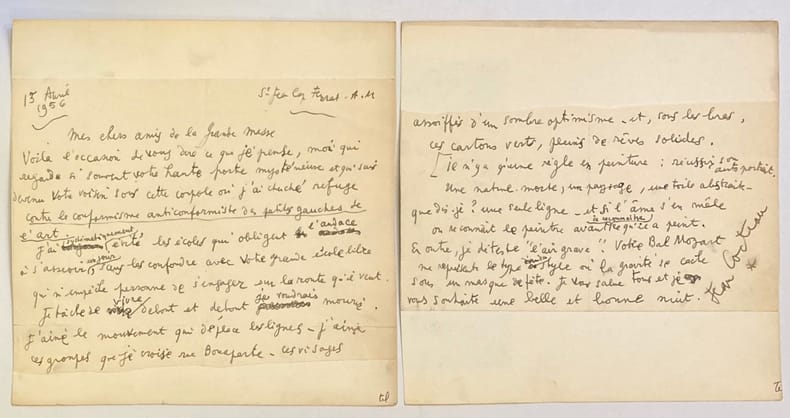 15 Avril
1956
St Jean Cap Ferrat. A.M
Mes chers amis de la Grande Masse
Voilà l'occasion de vous dire ce que je pense, moi qui
regarde si souvent votre haute porte mystérieuse et qui suis
devenu votre voisin sous cette coupole où j'ai cherché refuge
contre le conformisme anticonformiste des petits gauches de
l'art.
J'ai systématiquement évité les écoles qui obligent l'audace
à s'asseoir, sans les confondre avec votre grande école libre
qui n'empêche personne de s'engager sur la route qu'il veut.
Je tâche de vivre debout et debout je voudrais mourir.
J'aime le mouvement qui déplace les lignes - j'aime
ces groupes que je croise rue Bonaparte - ces visages
assoiffés d'un sombre optimisme - et, sous les bras,
ces cartons verts, pleins de rêves solides.
[Il n'y a qu'une règle en peinture : réussir son auto portrait.
Une nature morte, un paysage, une toile abstraite -
que dis-je ? une seule ligne - et si l'âme s'en mêle
on reconnaît le peintre avant de reconnaître ce qu'il a peint.
En outre, je déteste "l'air grave". Votre Bal Mozart
me représente le type du style où la gravité se cache
sous un masque de fête. Je vous salue tous et je
vous souhaite une belle et bonne nuit.
Jean Cocteau
*